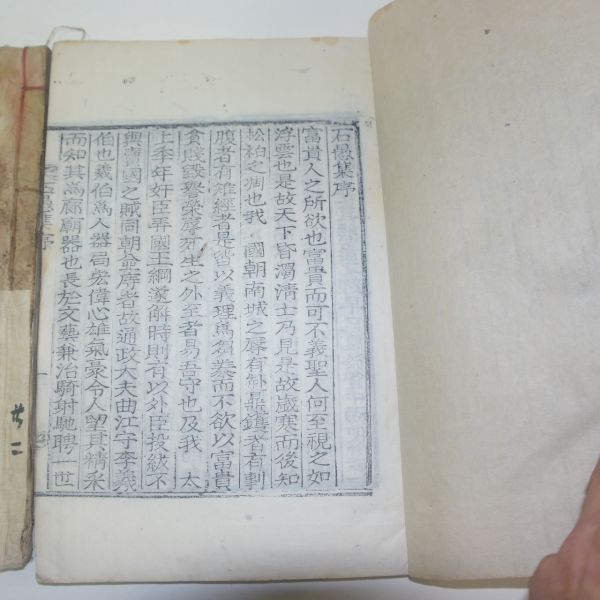 石愚集序
富貴人之所欲也富貴而可不義聖人何至視之如
浮雲也是故天下昏濁淸士乃見是故歲寒而後知
松柏之凋也我 國朝南城之辱有卦鼎鑊者有刳
腹者有雉經者是皆以義理爲芻豢而不欲以富貴
貪賤毀譽榮辱死生之外至者易吾守也及我 太
上季年奸臣弄國王綱遂解時則有以外臣投紱不
與賣國之賊同朝並席者故通政大夫曲江守李羲
伯也羲伯爲人器局宏偉心雄氣豪令人望其精采
而知其爲廊廟器也長於文藝兼治騎射馳聘一世
石愚集序
一
共二